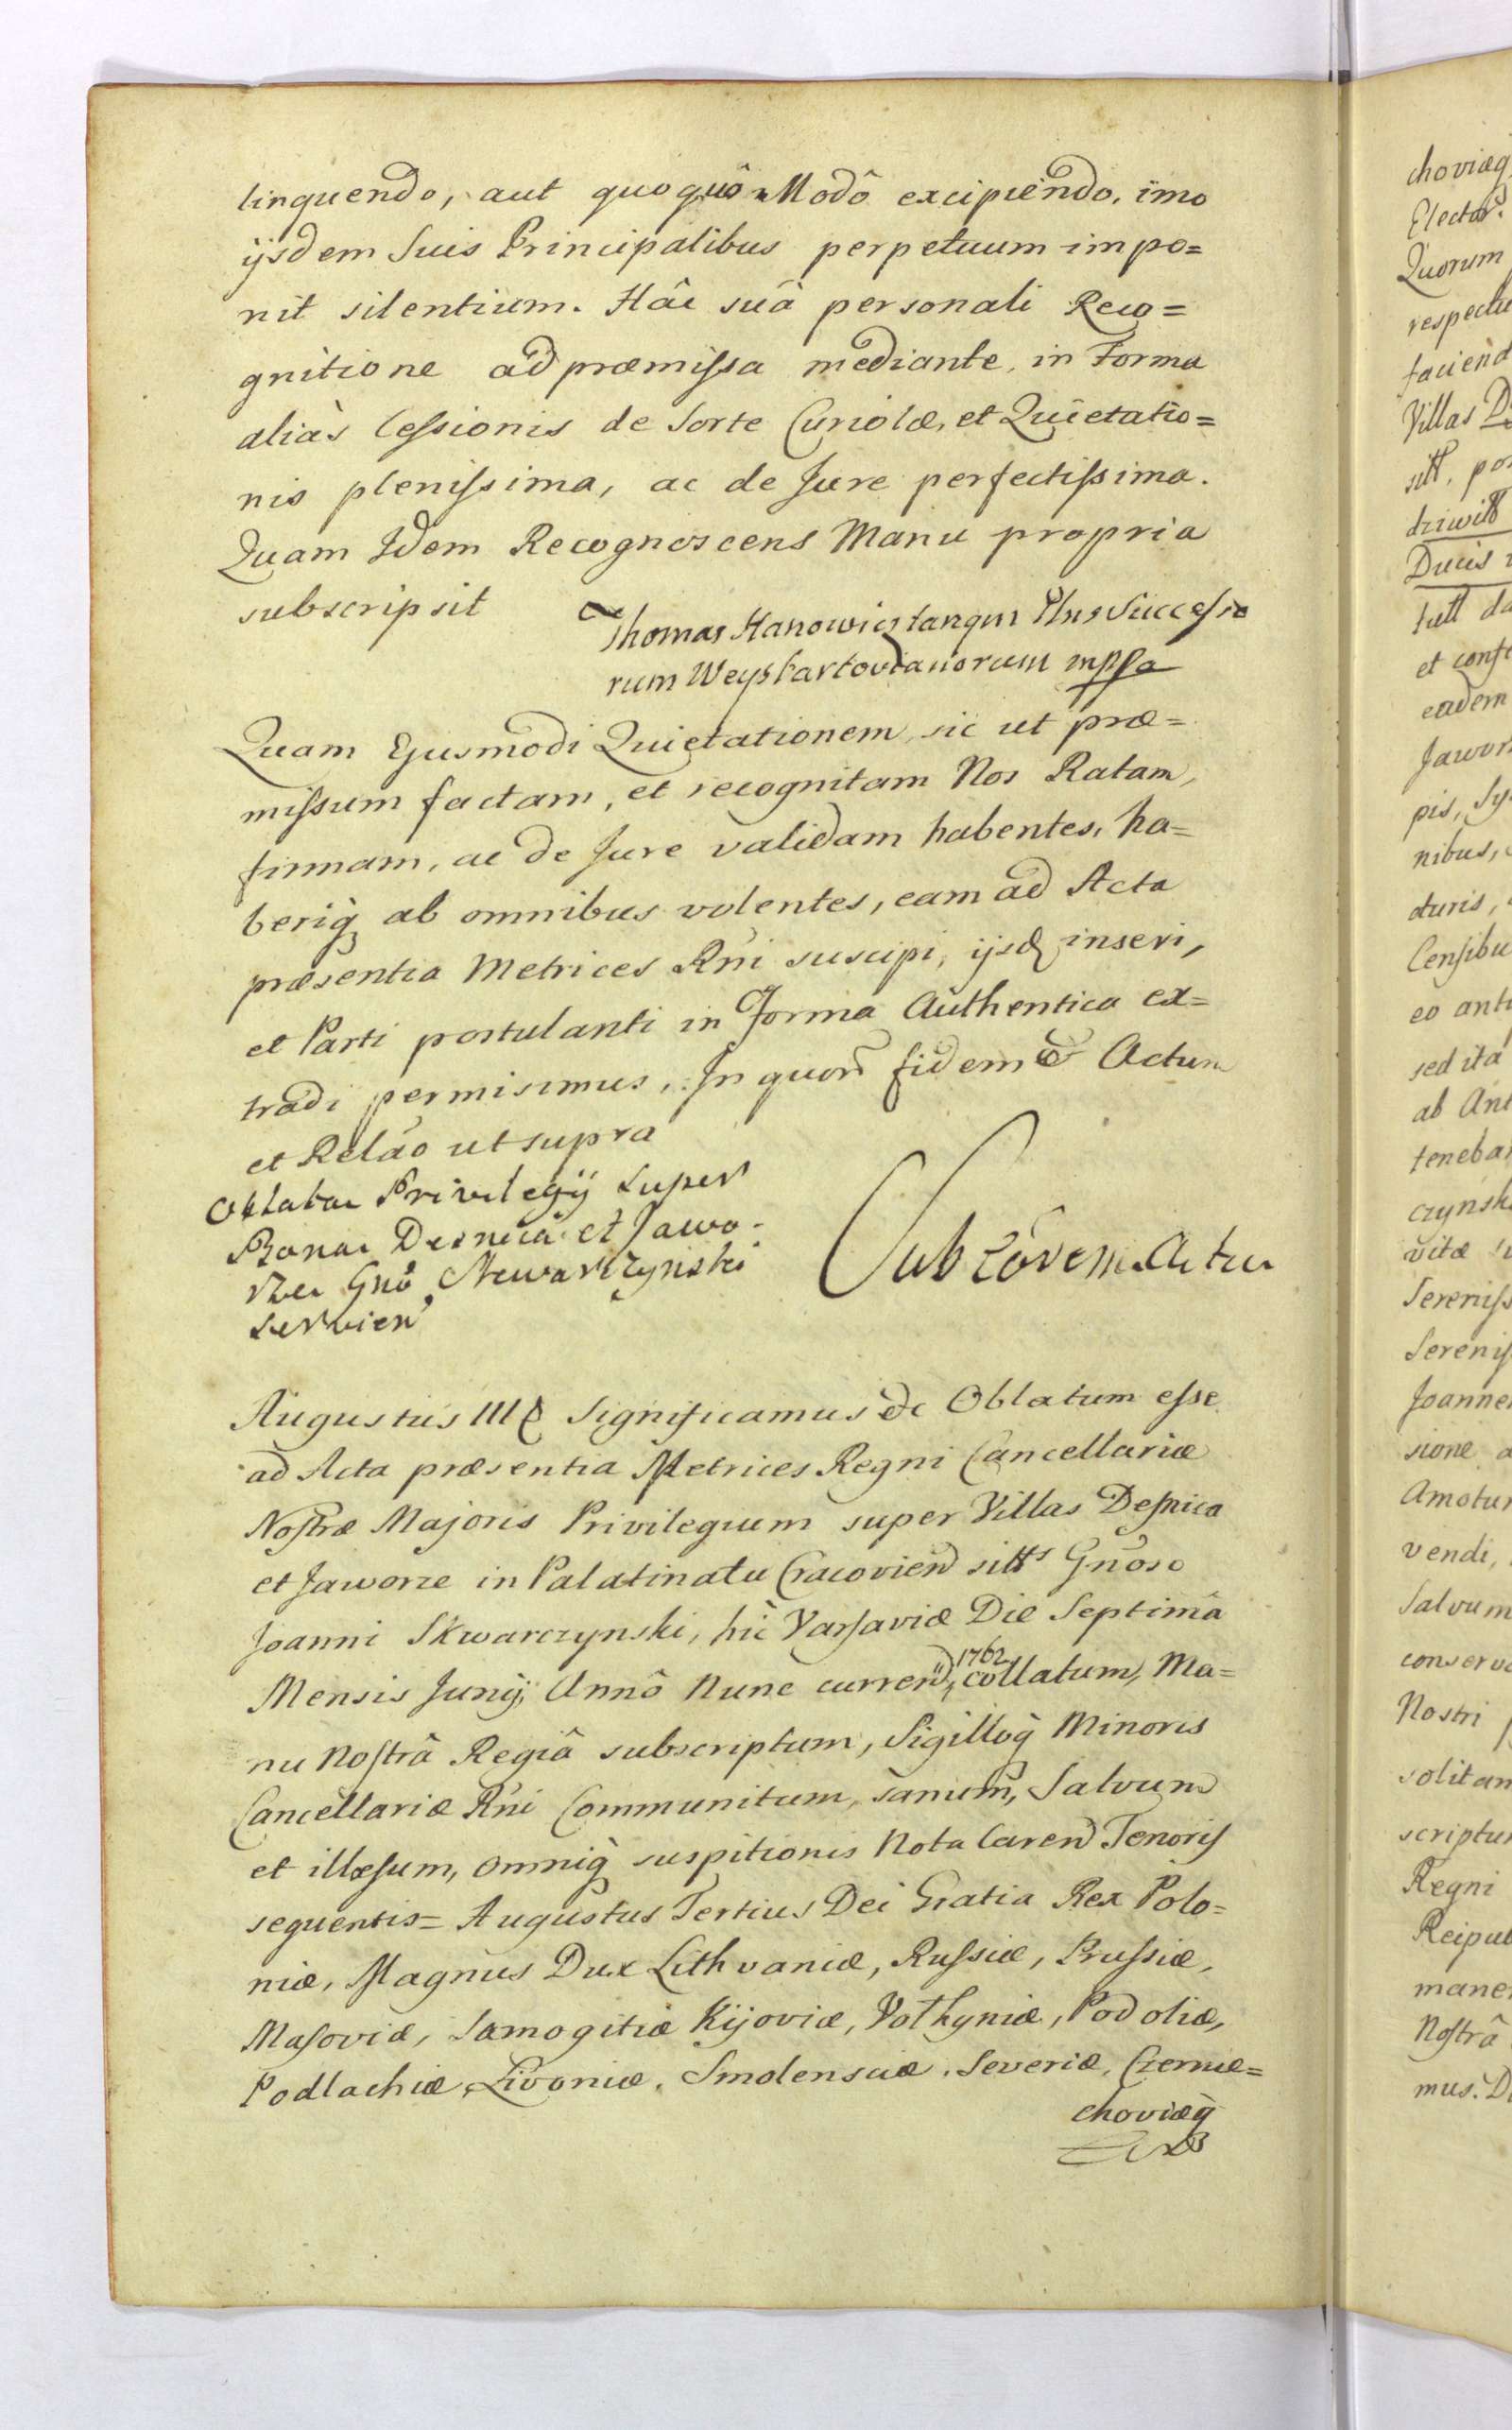 linquendo, aut quoquô Modô excipiendo, imo
ijsdem Suis Principalibus perpetuum impo=
nit silentium. Hâc suâ personali Reco=
gnitione ad præmissa mediante, in Forma
aliàs Cessionis de Sorte Curiolæ, et Quietatio=
nis plenissima, ac de Jure perfectissima.
Quam Idem Recognoscens Manu propria
subscripsit
Thomas Hanowicz tanqm Plus Successo
rum Weyskartovianorum mppa
Quam Ejusmodi Quietationem, sic ut præ=
missum factam, et recognitam Nos Ratam,
firmam, ac de Jure validam habentes, ha=
beriq ab omnibus volentes, eam ad Acta
præsentia Metrices Rñi suscipi, ijsd inseri,
et Parti postulanti in Forma Authentica ex=
tradi permisimus. In quor fidem &c Actum
et Relão ut supra
Oblatae Privilegÿ super
Bona Desnica et Jawo-
rze Gnô Skwarczynski
servien
Sub eôdem Actu
Augustus III & Significamus &c Oblatum esse
ad Acta præsentia Metrices Regni Cancellariæ
Nostræ Majoris Privilegium super Villas Desnica
et Jaworze in Palatinatu Cracovien sitts Gñoso
Joanni Skwarczynski, hic Varsaviæ Die Septimâ
Mensis Junÿ, Annô Nunc curren, 1762 collatum, Ma=
nu Nostrâ Regiâ subscriptum, Sigilloq Minoris
Cancellariæ Rñi Communitum, sanum, Salvum
et illæsum, omniq suspitionis Nota Caren Tenoris
sequentis= Augustus Tertius Dei Gratia Rex Polo=
niæ, Magnus Dux Lithvaniæ, Russiæ, Prussiæ,
Masoviæ, Samogitiæ Kijoviæ, Volhyniæ, Podoliæ,
Podlachiæ, Livoniæ, Smolensciæ, Severiæ, Czernie=
choviæq
choviæq
Elector.
Quorum
Villas
sitt,
Ducis
nibus,
sed ita
vitæ
vendi,
Salvum
Nostri
Regni
Nostrâ
mus.